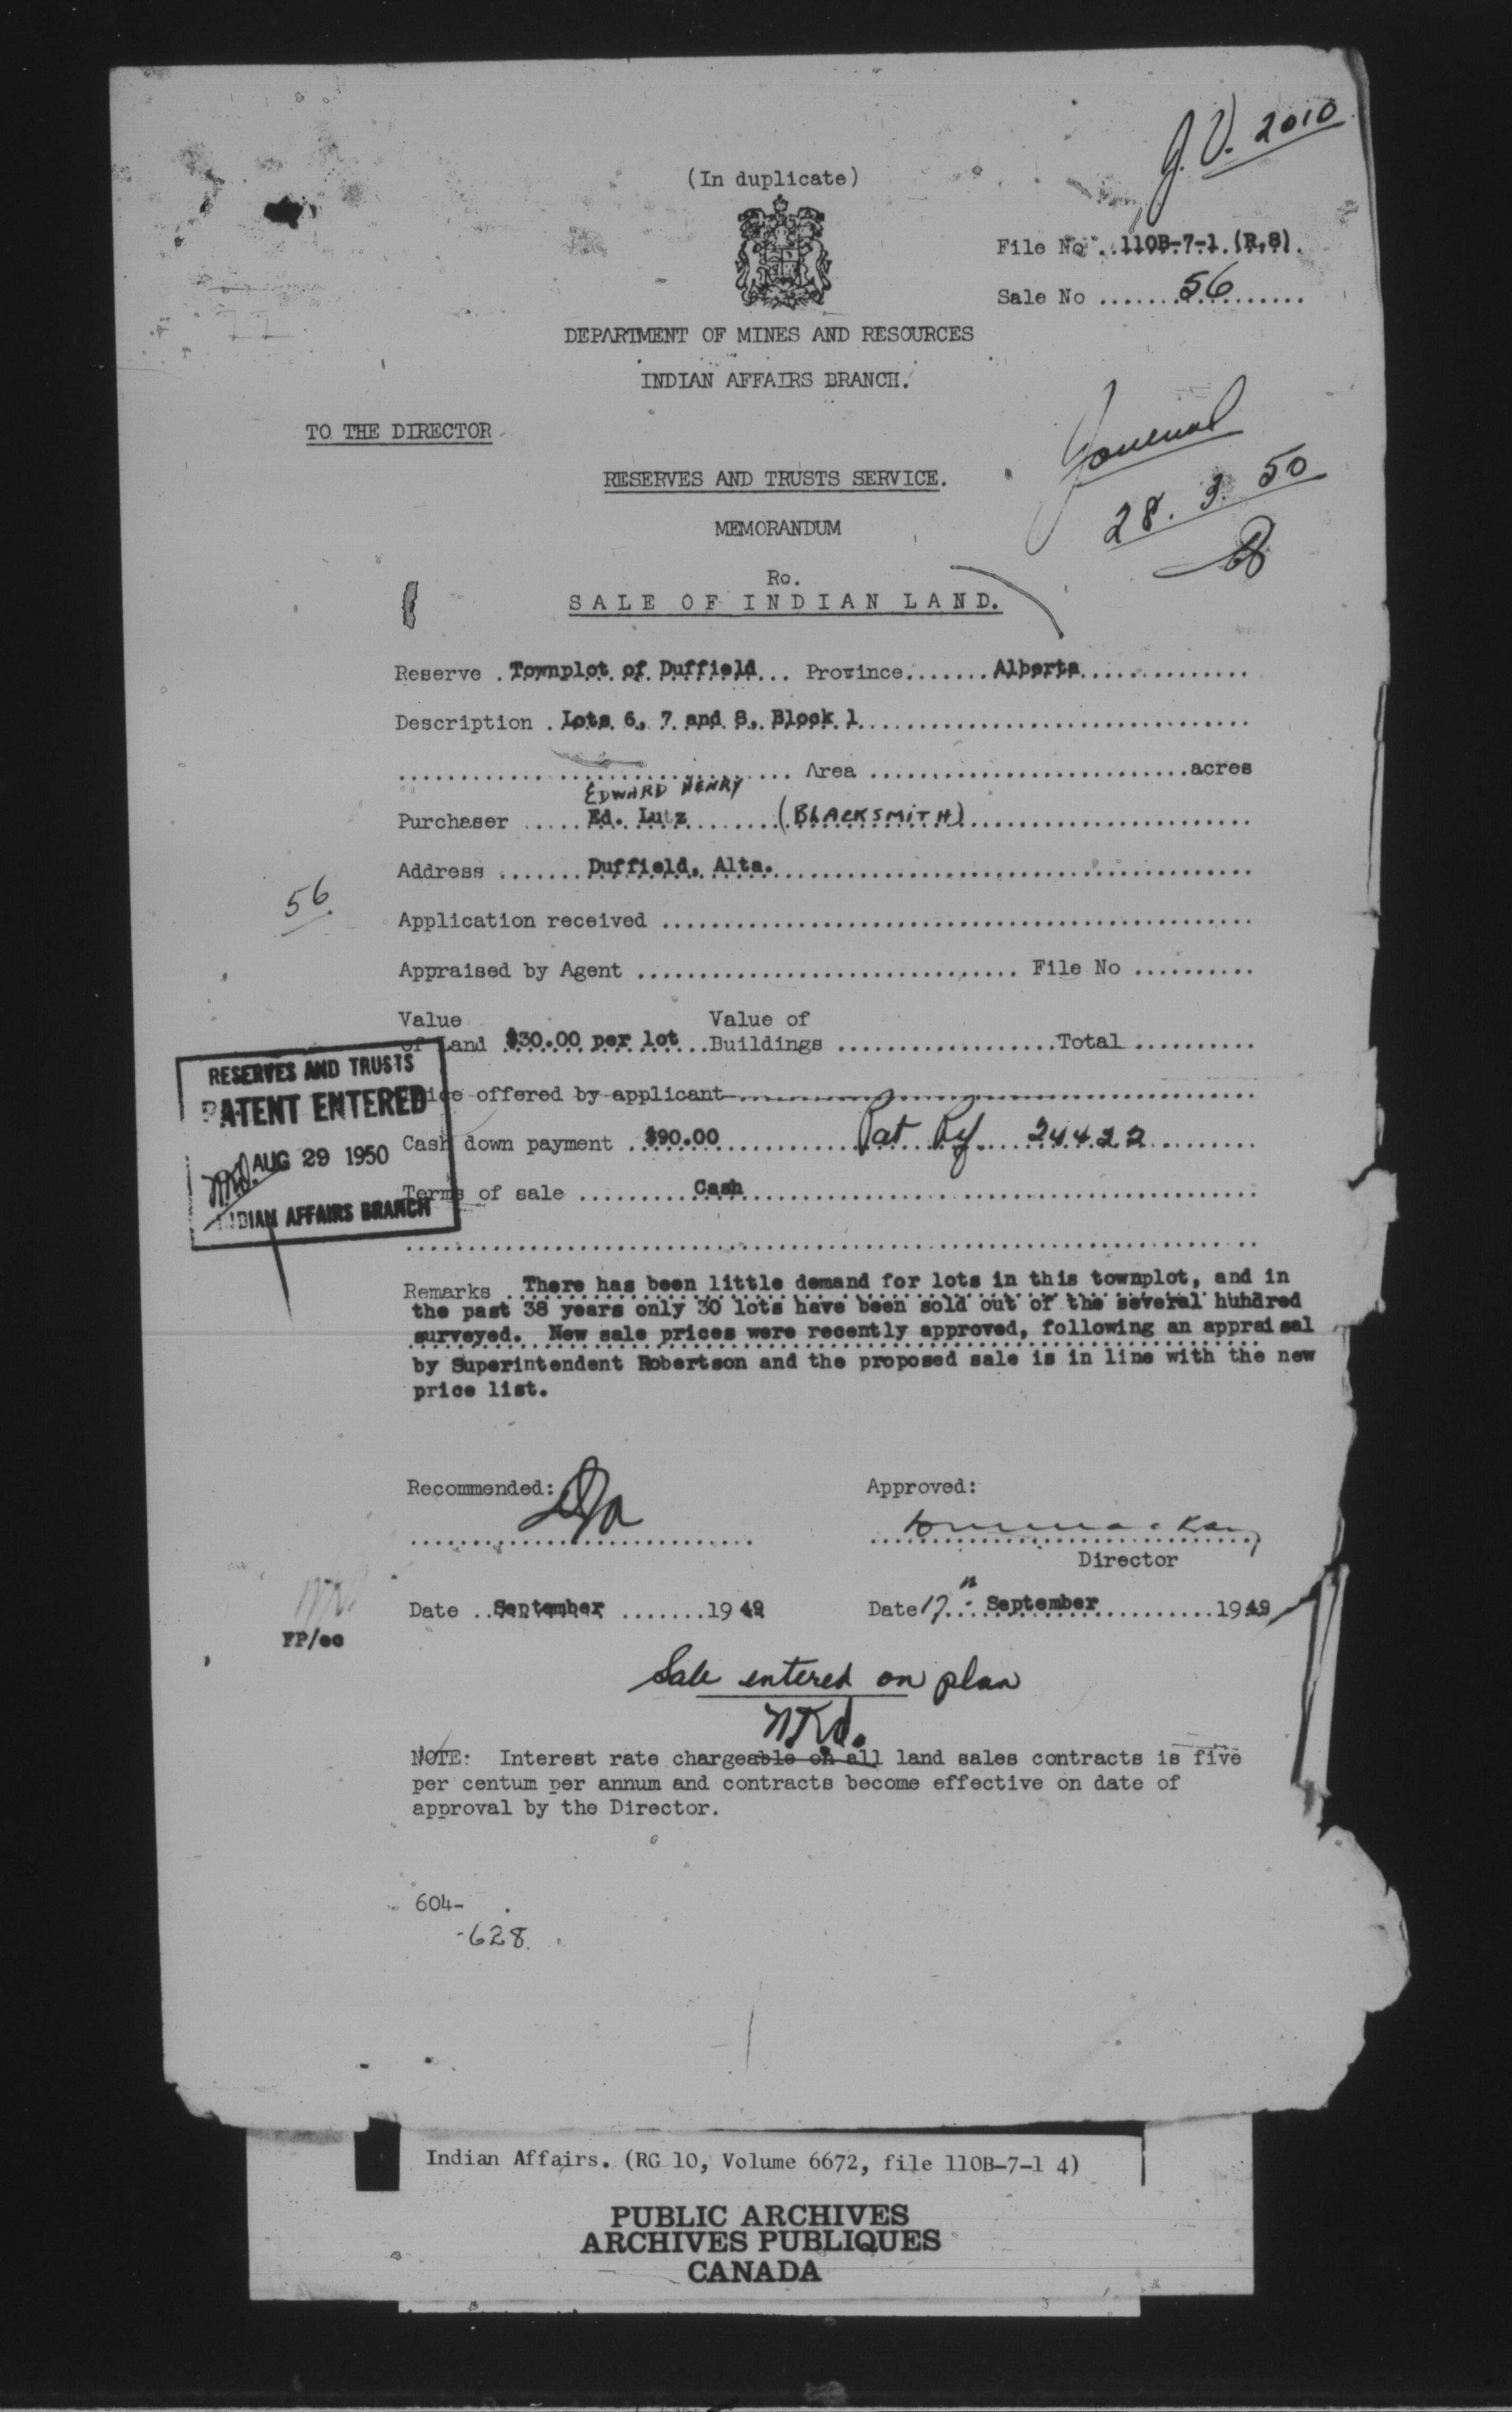 J.V. 2010
(In duplicate)
File No 110B-7-1 (R,8).
Sale No ....... 56 .......
DEPARTMENT OF MINES AND RESOURCES
INDIAN AFFAIRS BRANCH.
TO THE DIRECTOR
Journal
RESERVES AND TRUSTS SERVICE.
28. 3. 50
MEMORANDUM
Re.
SALE OF INDIAN LAND.
Reserve . Townplot of Duffield... Province....... Alberta..............
Description . Lots 6, 7 and 8, Block 1................................
................................ Area ..........................acres
EDWARD HENRY
Purchaser ..... Ed. Lutz ....... (BLACKSMITH).......................
Address ....... Duffield, Alta.......................................
56.
Application received ................................................
Appraised by Agent ............................... File No ..........
Value Value of
of Land $30.00 per lot ..Buildings ..................Total ..........
Price offered by applicant...........................................
Cash down payment .. $90.00 ........... Pat Rf 24422.........
Terms of sale ......... Cash.........................................
RESERVES AND TRUSTS
PATENT ENTERED
AUG 29 1950
INDIAN AFFAIRS BRANCH
Remarks . There has been little demand for lots in this townplot, and in
the past 38 years only 30 lots have been sold out of the several huhdred
surveyed. New sale prices were recently approved, following an appraisal
by Superintendent Robertson and the proposed sale is in line with the new
price list.
Recommended: Approved:
Director
Date .. September .......19 49 Date 17th September ..........19 49
FP/ec
Sale entered on plan
NOTE: Interest rate chargeable on all land sales contracts is five
per centum per annum and contracts become effective on date of
approval by the Director.
604-
-628.
Indian Affairs. (RG 10, Volume 6672, file 110B-7-1 4)
PUBLIC ARCHIVES
ARCHIVES PUBLIQUES
CANADA